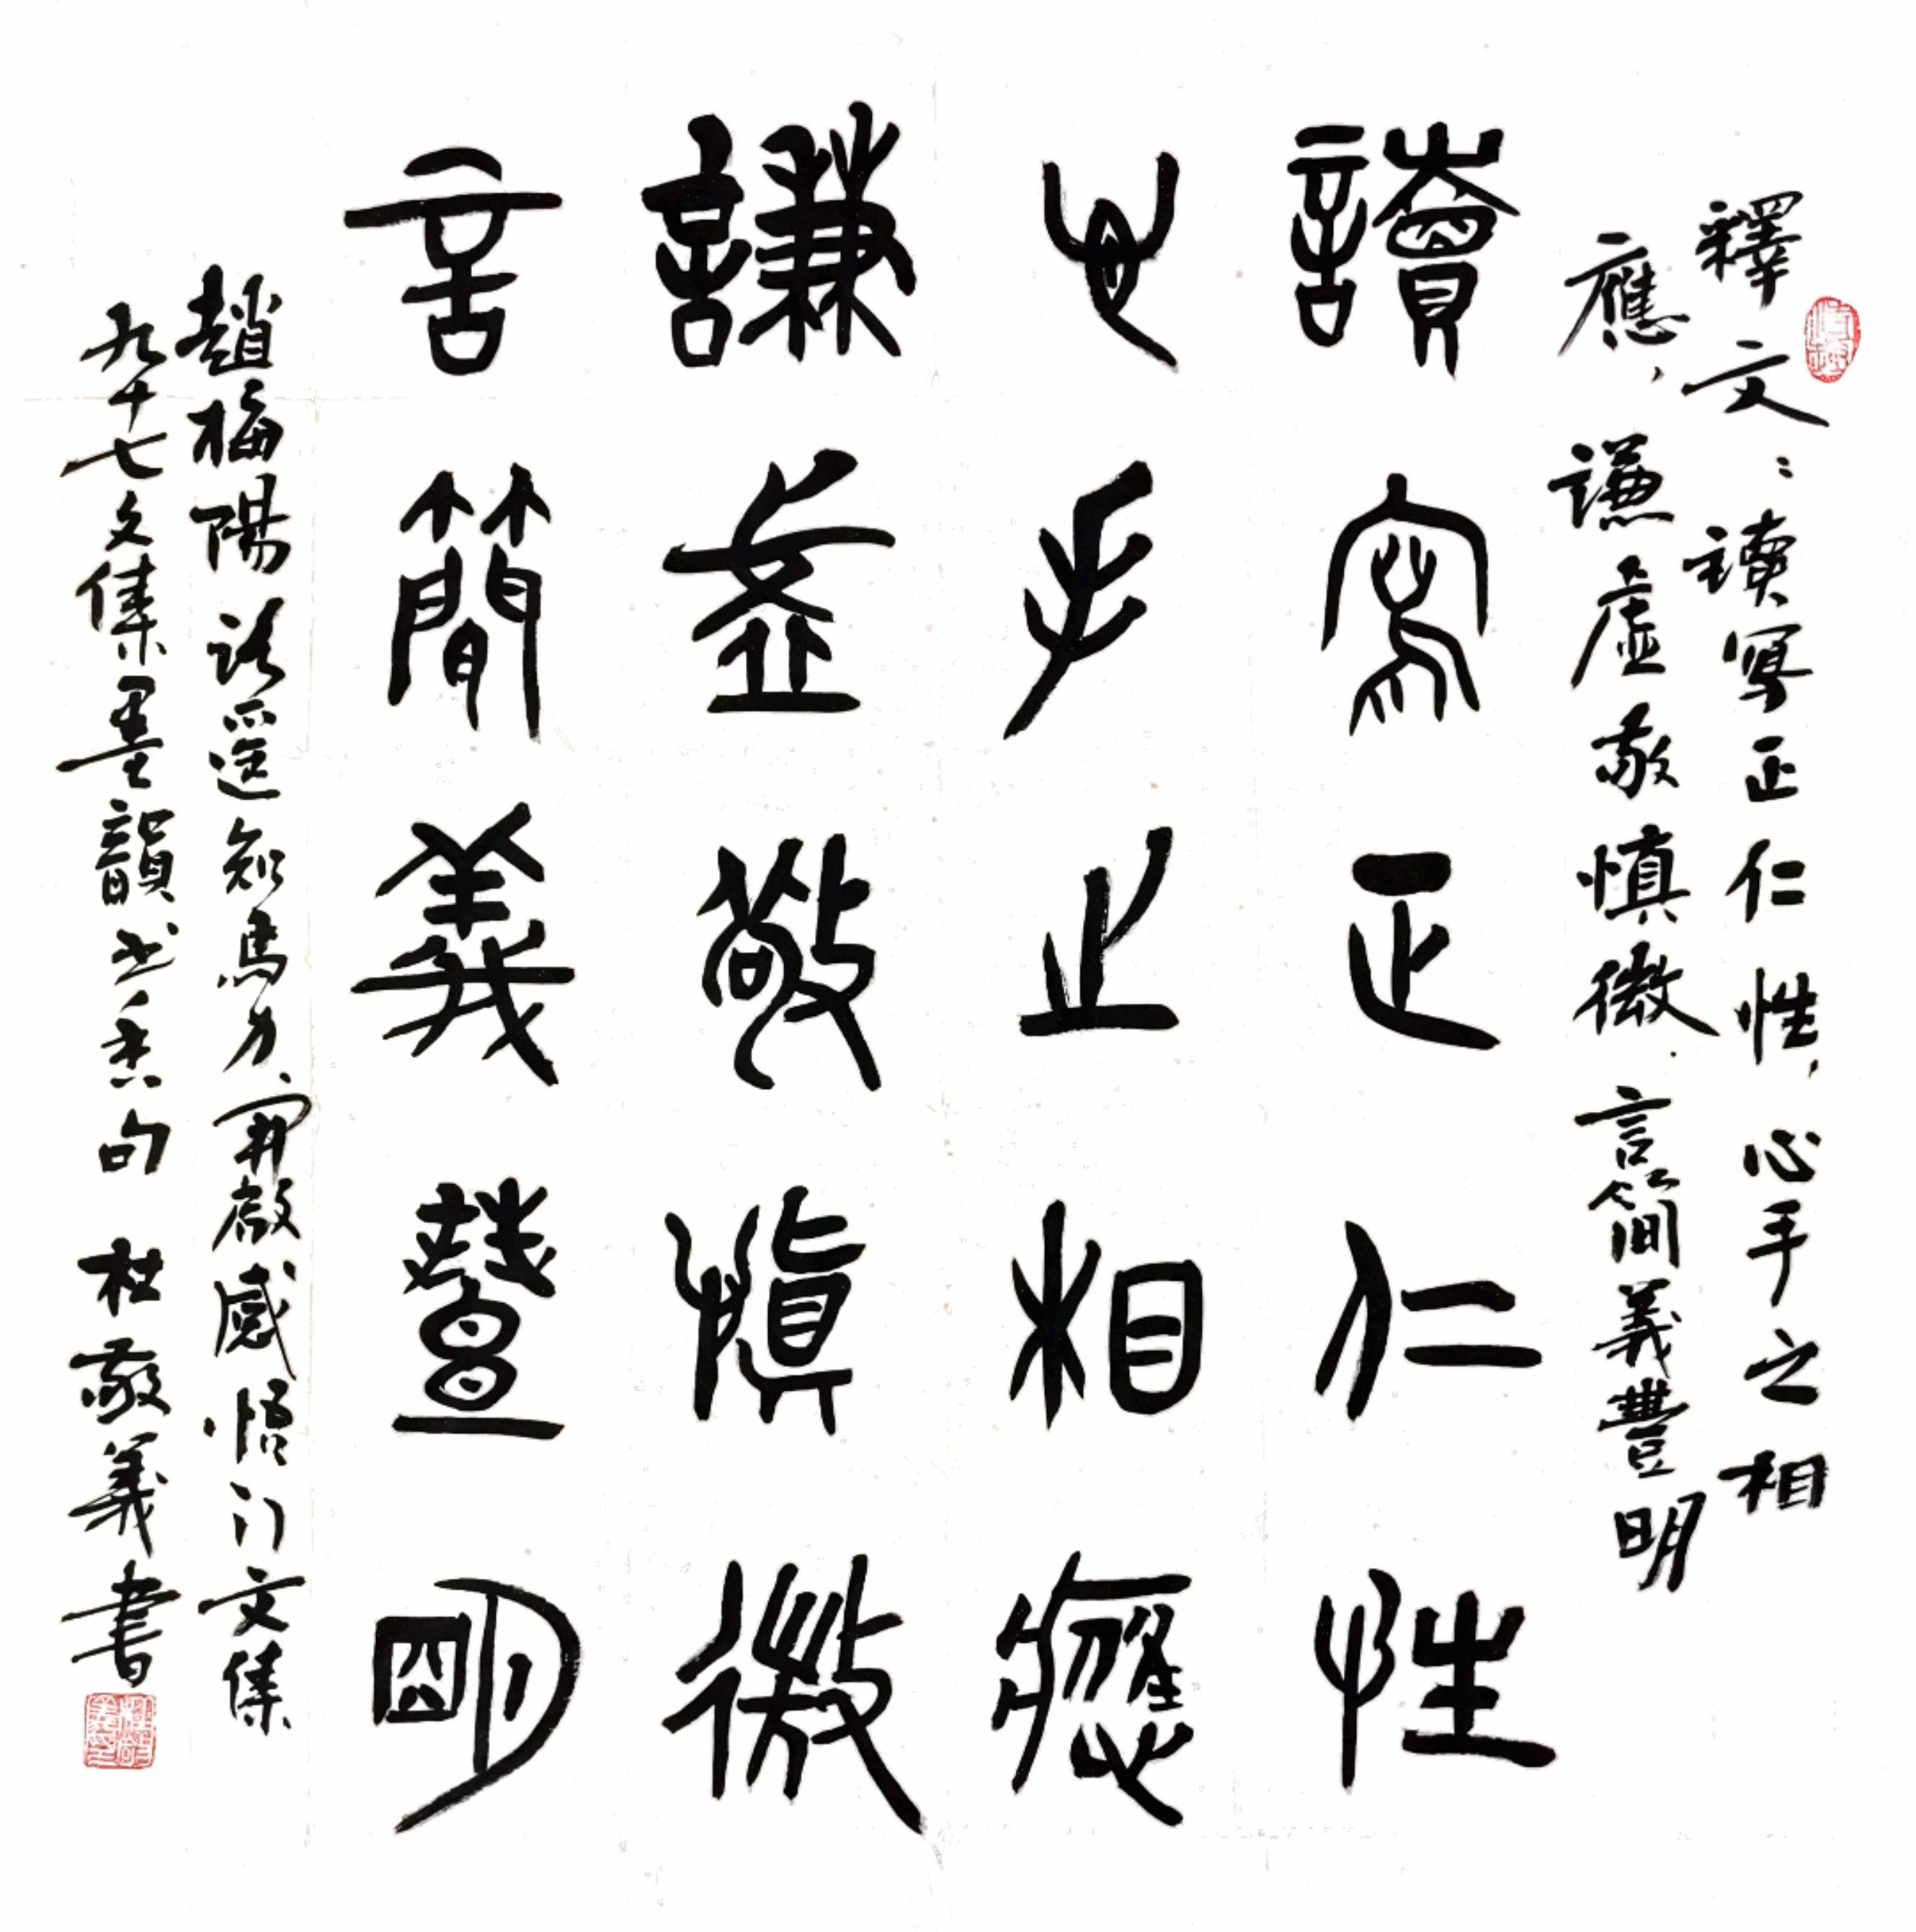 釋文：讀寫正仁性，心手之相
應，謙虛敬慎微．言簡義豐明
讀寫正仁性
心手之相應
謙虛敬慎微
言簡義豐明
趙梅陽路遥知馬力、開啟感悟门文集
九十七文集墨韻书香句 杜敬義書